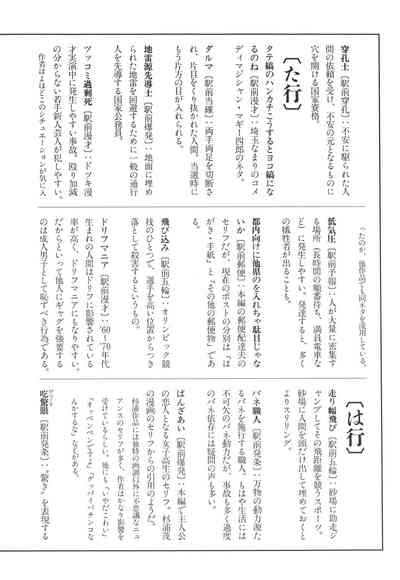 穿孔士〔駅前穿孔〕：不安に駆られた人
間の依頼を受け、不安の元となるものに
穴を開ける国家資格。
〔た行〕
タテ縞のハンカチこうするとヨコ縞にな
るのね〔駅前漫才〕：埼玉なまりのコメ
ディマジシャン・マギー四郎のネタ。
ダルマ〔駅前当確〕：両手両足を切断さ
れ、片目をくり抜かれた人間。当選時に
もう片方の目が入れられる。
地雷源先導士〔駅前爆発〕：地面に埋め
られた地雷を回避するために一般の通行
人を先導する国家公務員。
ツッコミ過剰死〔駅前漫才〕：ドツキ漫
才実演中に発生しやすい事故。殴り加減
の分からない若手新人芸人が犯しやすい。
作者はよほどこのシチュエーションが気に入
ったのか、他作品でも同ネタを流用している。
低気圧〔駅前予報〕：人が大量に密集す
る場所（長時間の順番待ち、満員電車な
ど）に発生しやすい。発達すると、多く
の犠牲者が出ることも。
都内向けに他県のを入れちゃ駄目じゃな
いか〔駅前郵便〕：本編の郵便配達夫の
セリフだが、現在のポストの分別は「は
がき・手紙」と「その他の郵便物」であ
る。
飛び込み〔駅前五輪〕：オリンピック競
技のひとつで、選手を高い位置からつき
落として殺害するというもの。
ドリフマニア〔駅前漫才〕：'60〜70年代
生まれの人間はドリフに影響されている
率が高く、ドリフマニアにもなりやすい。
だからといって他人にギャグを強要する
のは成人男子として恥ずべき行為である。
〔は行〕
走り幅飛び〔駅前五輪〕：砂場に助走ジ
ャンプしてその飛距離を競うスポーツ。
砂場に人間を頭だけ出して埋めておくと
よりスリリング。
バネ職人〔駅前発条〕：万物の動力源た
るバネを施行する職人。もはや生活には
不可欠のバネ動力だが、事故も多く過度
のバネ依存には疑問の声も多い。
ばんざあい〔駅前爆発〕：本編で主人公
の恋人となる女子高生のセリフ。杉浦茂
の漫画のセリフからの引用のようだ。
杉浦作品には独特の画調以外に不思議なニュ
アンスのセリフが多く、作者はかなり影響を
受けているらしい。他にも「いやだこわい」
んかするな」などがある。
吃驚眼〔駅前発条〕："驚き"を表現する